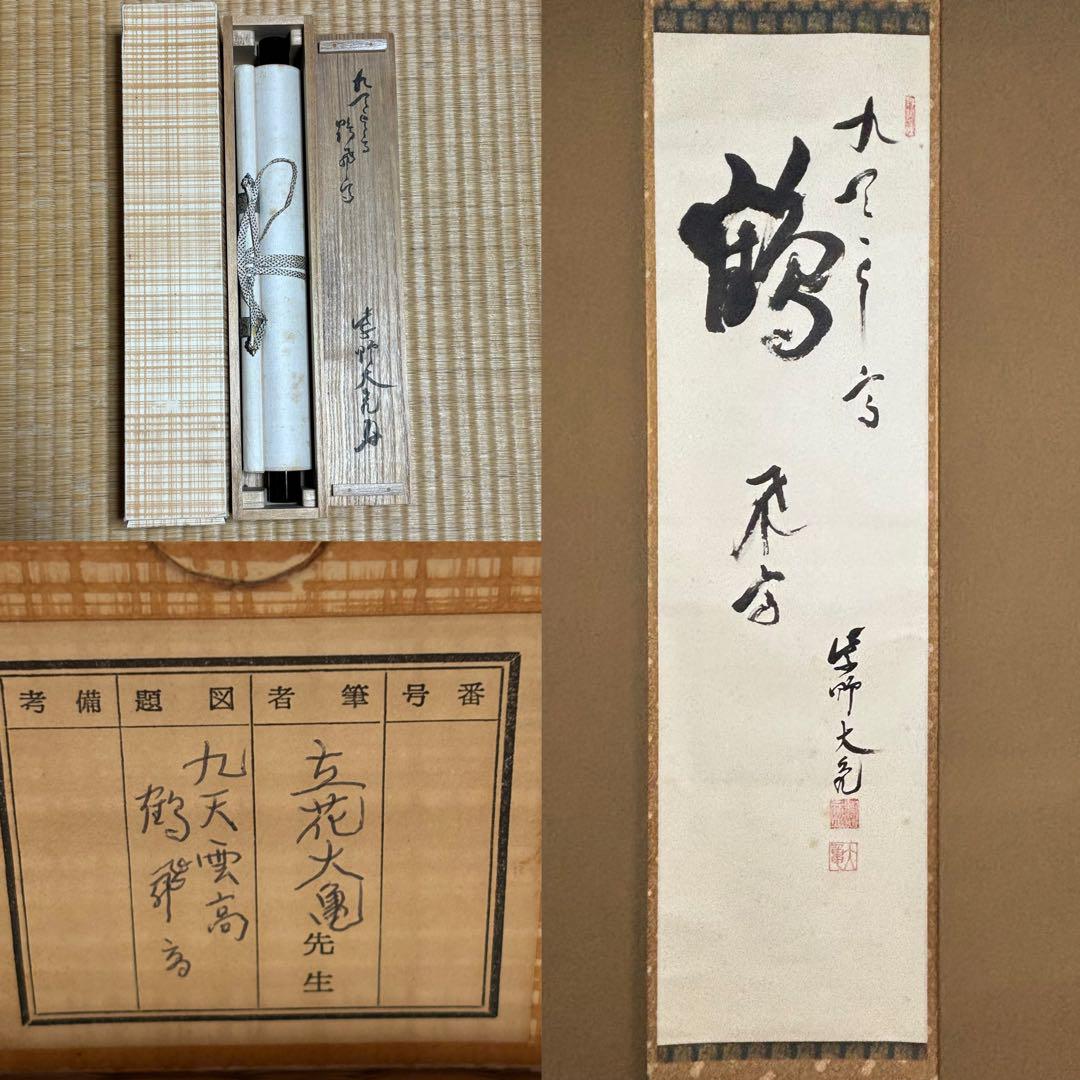 九天雲高
鶴飛高
紫野大亀
番号
筆者
図題
備考
立花大亀先生
九天雲高
鶴飛高
九天雲高
鶴飛高
紫野大亀
大亀